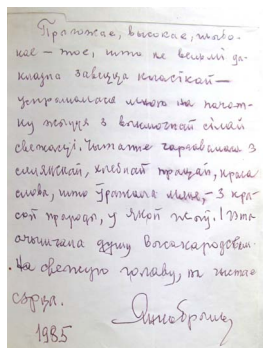 Прыгожае, высокае, глыбо-
кае — тое, што не вельмі да-
кладна завецца класікай —
успрымалася мною на пачат-
ку жыцця з выключнай сілай
свежасці. Чытанне чаргавалася з
сялянскай, хлебнай працай, краса
слова, што ўражала мяне, — з кра-
сой прыроды, у якой жыў. І гэта
ачышчала душу высакароднасцю.
На свежую голаву, на чыстае
сэрца.
1985
Янка Брыль